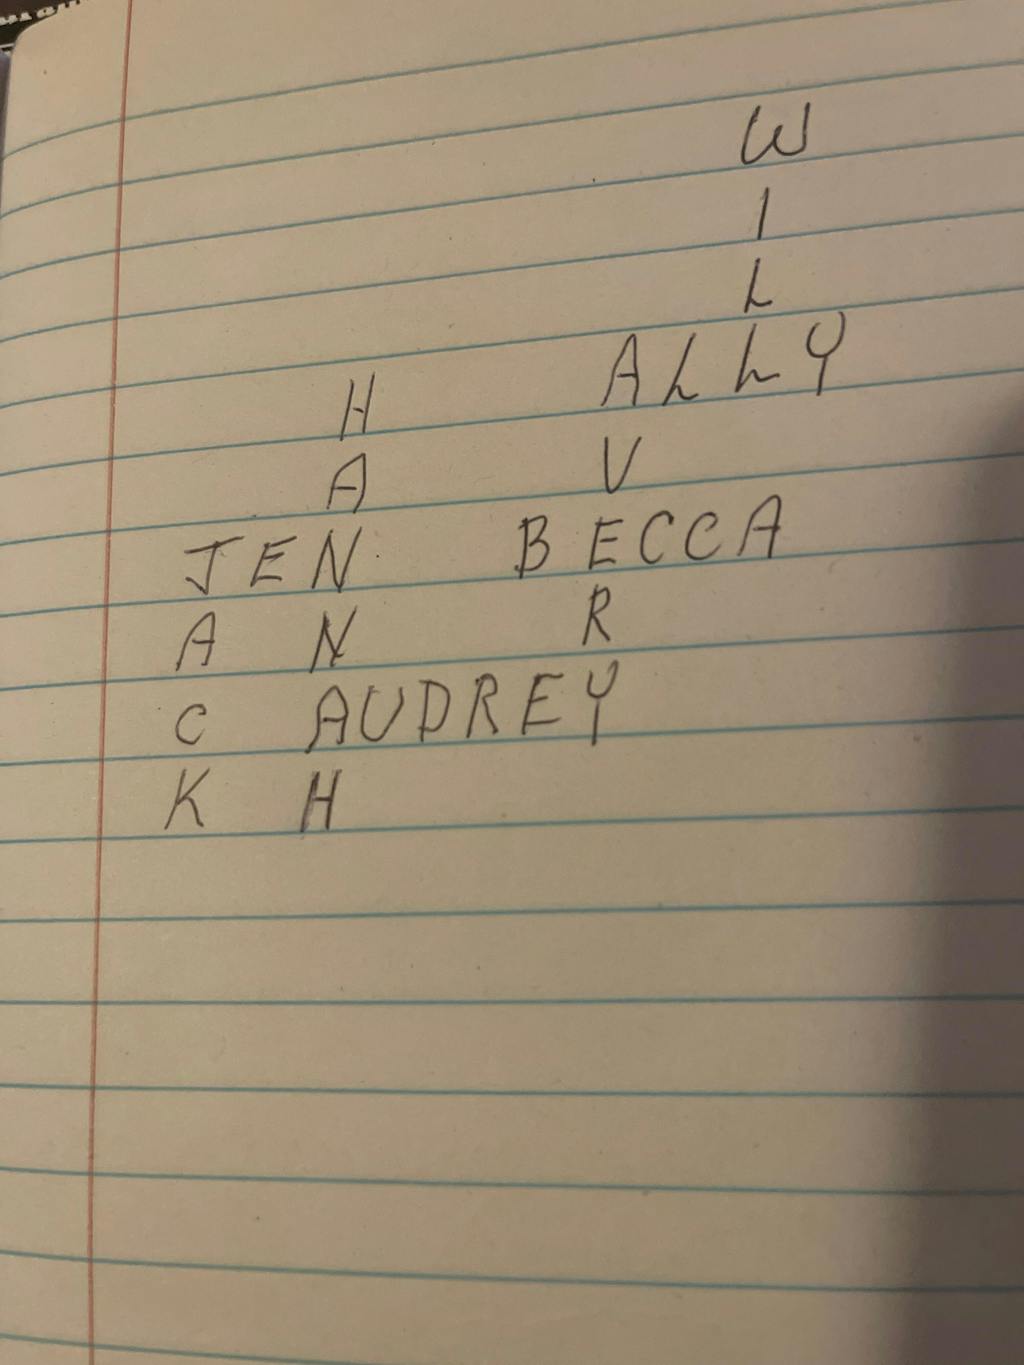 W
I
L
H ALLY
A V
JEN BECCA
A N R
C AUDREY
K H